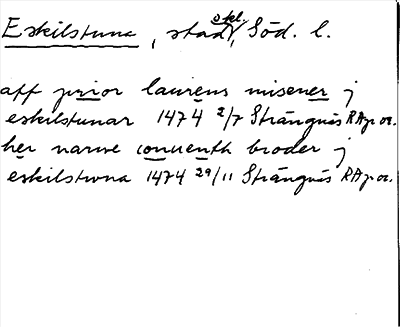 Eskilstuna, stad, ekl., Söd. l.
aff prior laurens misener j
eskilstunar 1474 2/7 Strängnäs RAp or.
her narwe conuenth broder j
eskilstwna 1474 29/11 Strängnäs RAp or.